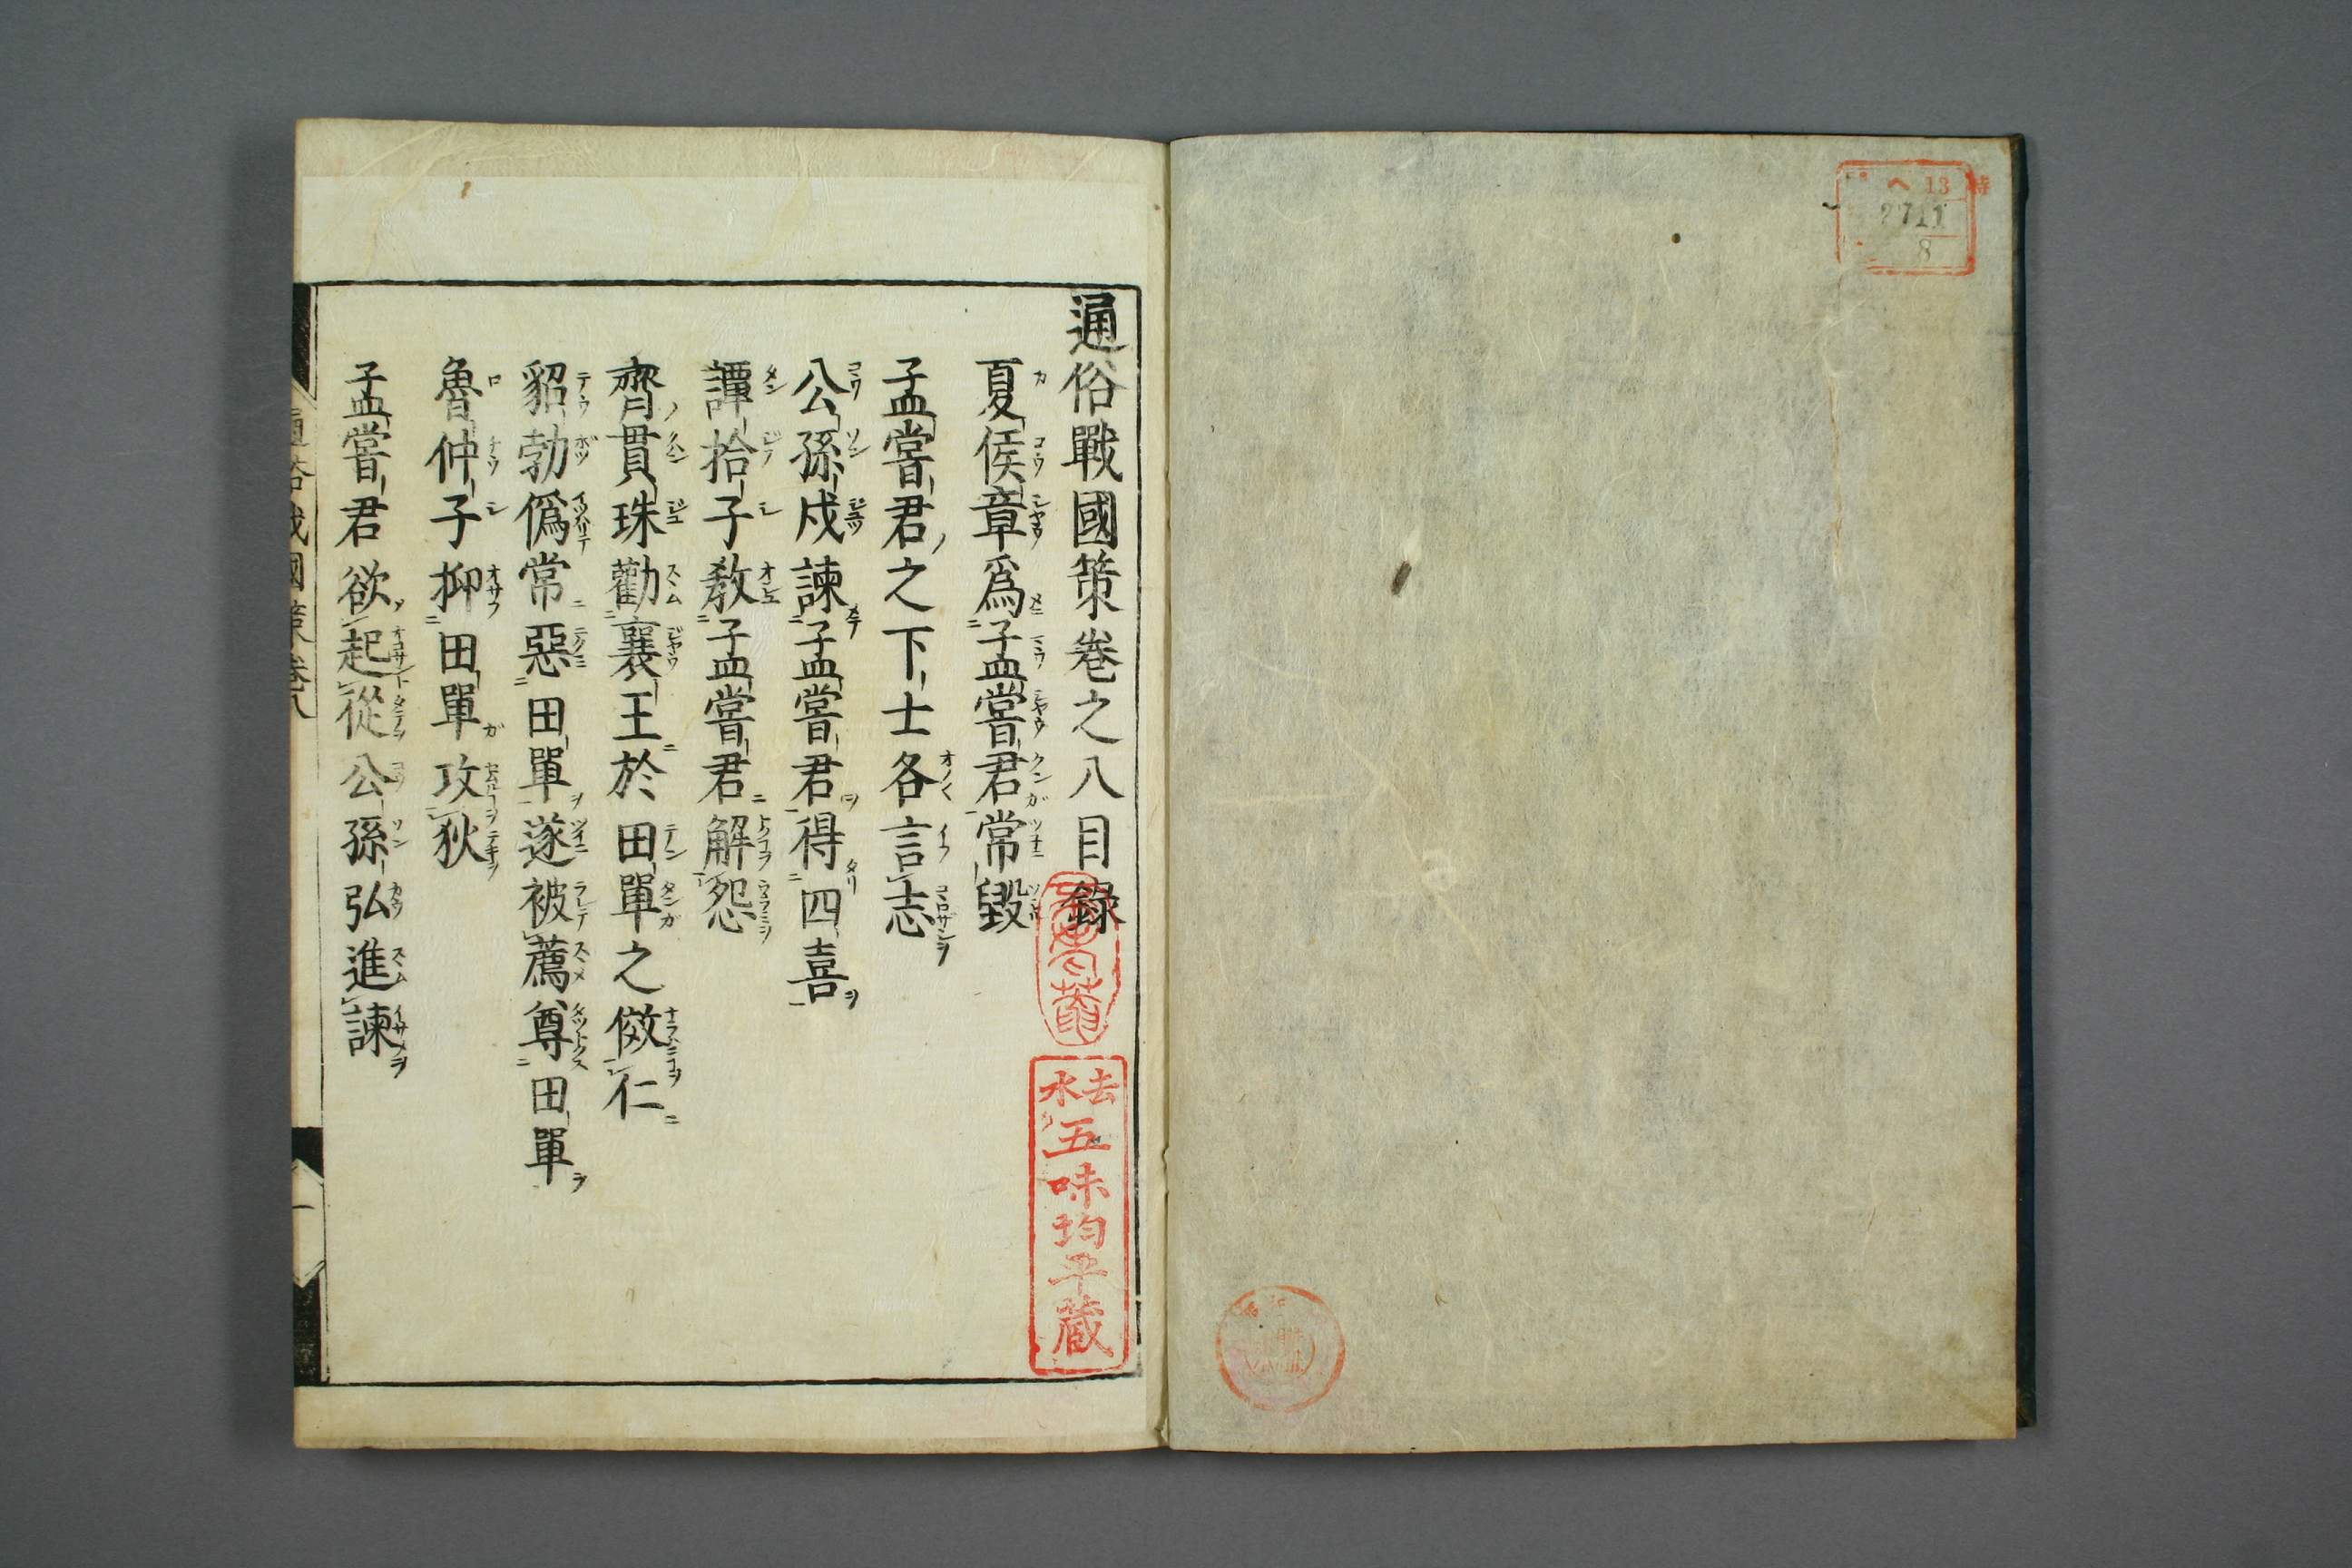 ヘ 13
2711
8
通俗戰國策卷之八目錄
夏侯章爲孟嘗君常毀
孟嘗君之下士各言志
公孫戍諫孟嘗君得四喜
譚拾子敎孟嘗君解怨
齊貫珠勸襄王於田單之傚仁
貂勃僞常惡田單遂被薦尊田單
魯仲子抑田單攻狄
孟嘗君欲起從公孫弘進諫
去水
五味均平藏
通俗戰國策卷八